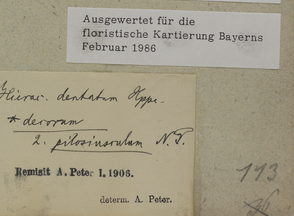 Ausgewertet für die
floristische Kartierung Bayerns
Februar 1986
Hierac. dentatum Hppe.
* decorum
2. pilosiusculum N. P.
Remisit A. Peter 1.1906.
determ. A. Peter.
113